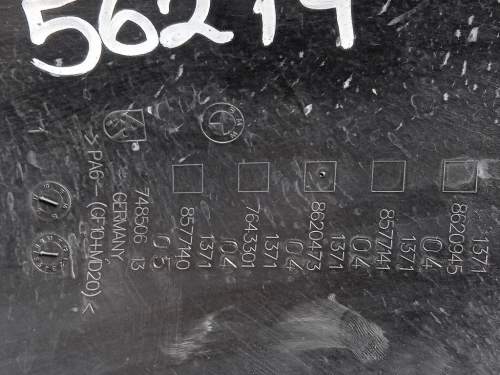 1371
8620945
04
1371
8577141
04
1371
8620473
04
1371
7643301
04
1371
8577140
05
748506 13
GERMANY
>PA6-(GF10+MD20)<
BMW